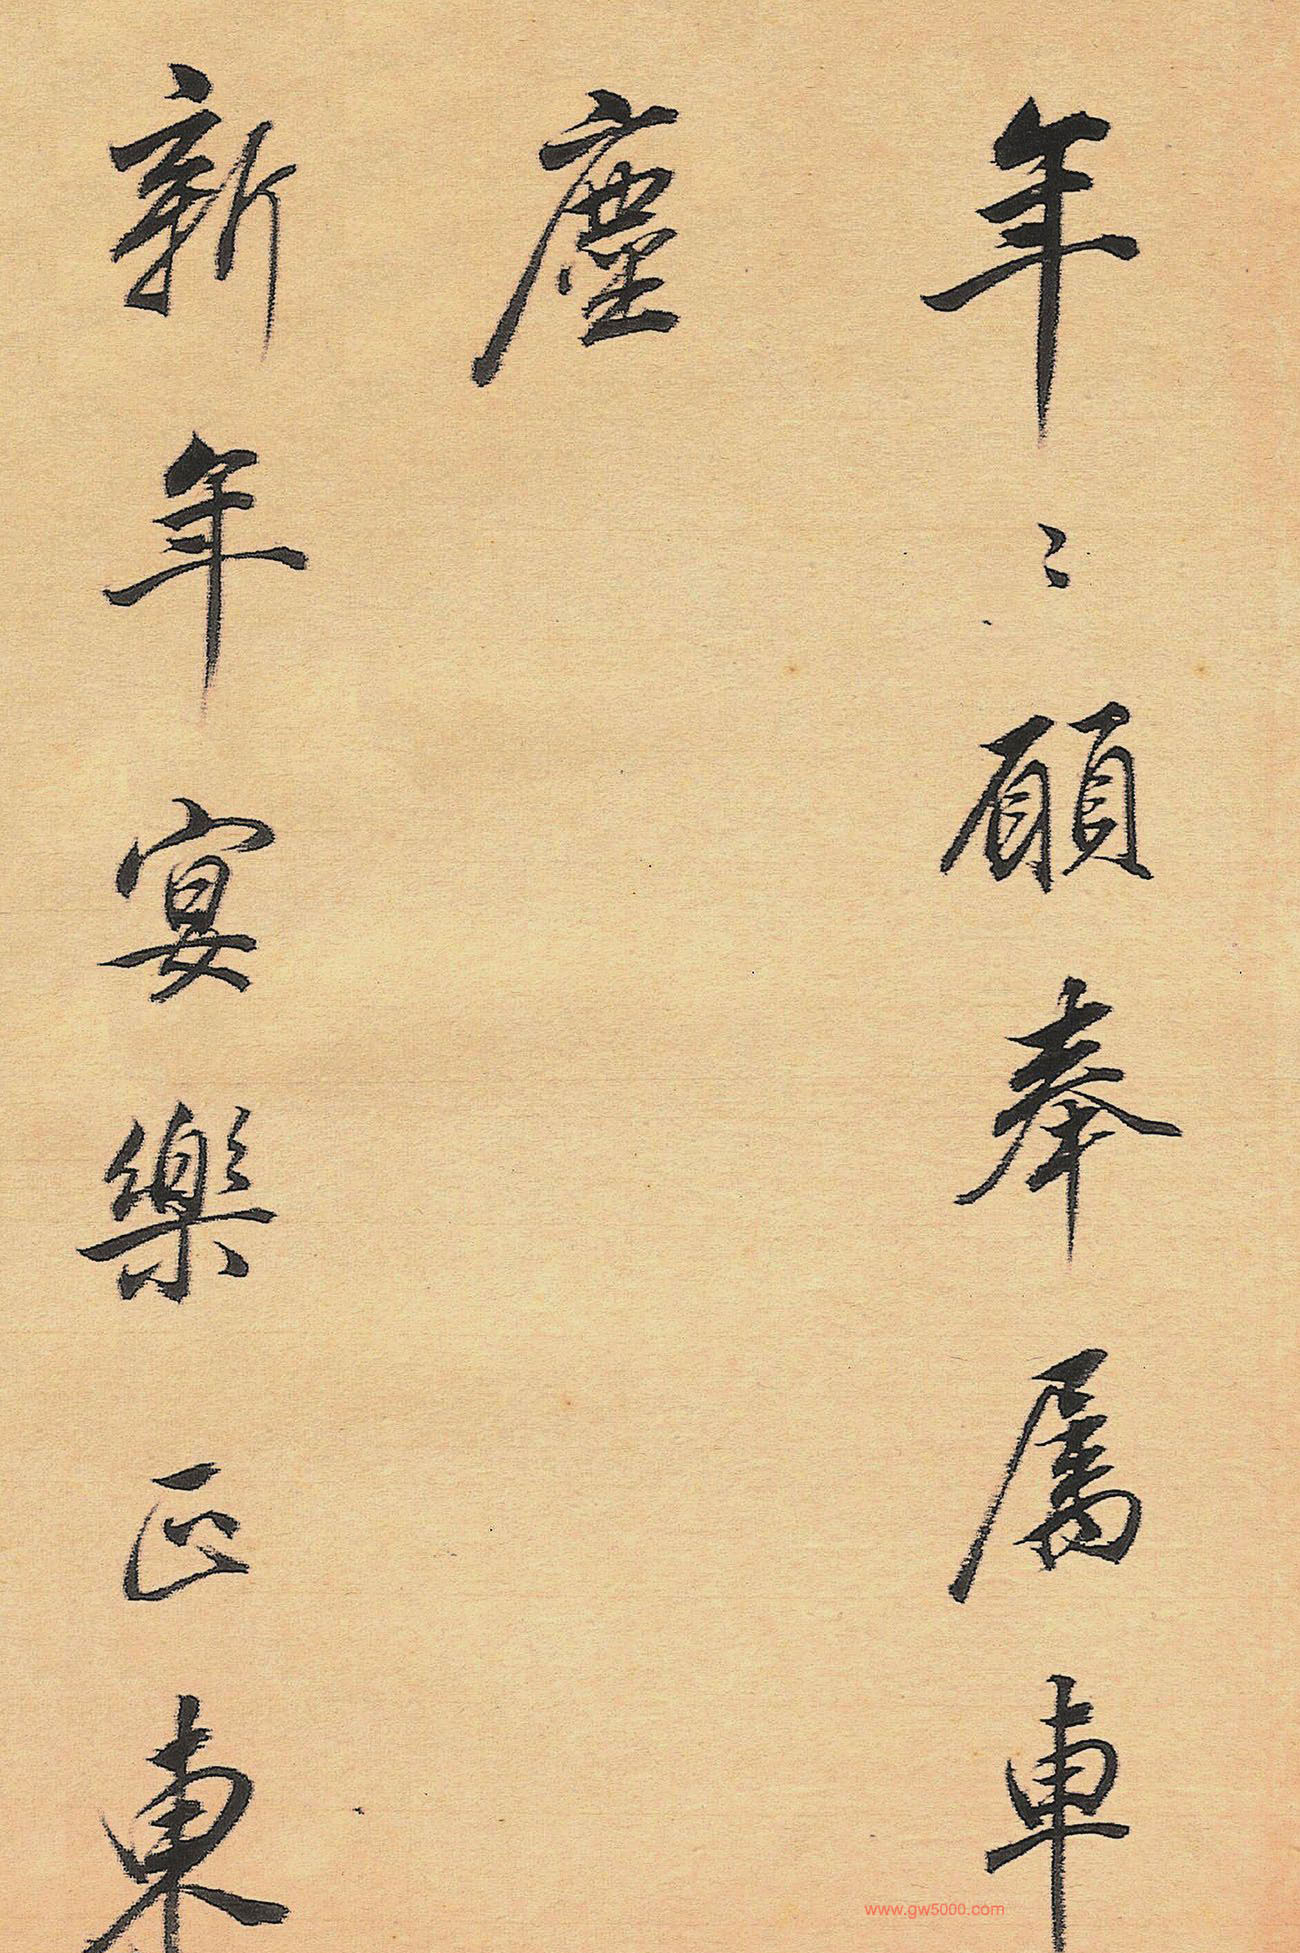 年〻願奉属車
塵
新年宴樂正東
www.gw5000.com